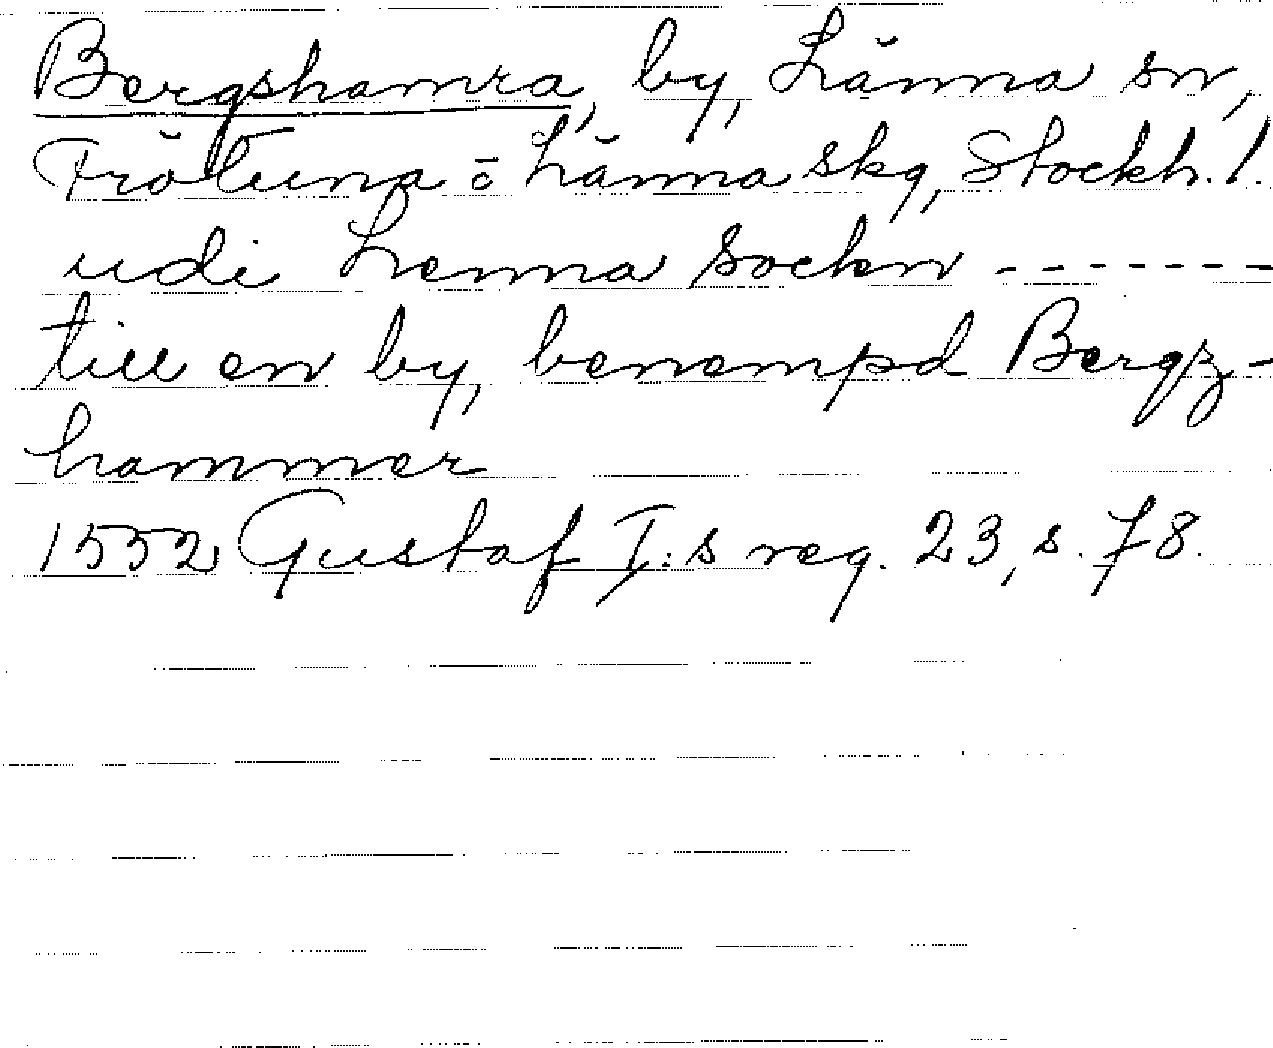 Bergshamra, by, Länna sn,
Frötuna o Länna skg, Stockh. l.
udi Lenna sockn - - - - - - -
till en by, benempd Bergz-
hammer
1552 Gustaf I:s reg. 23, s. 78.